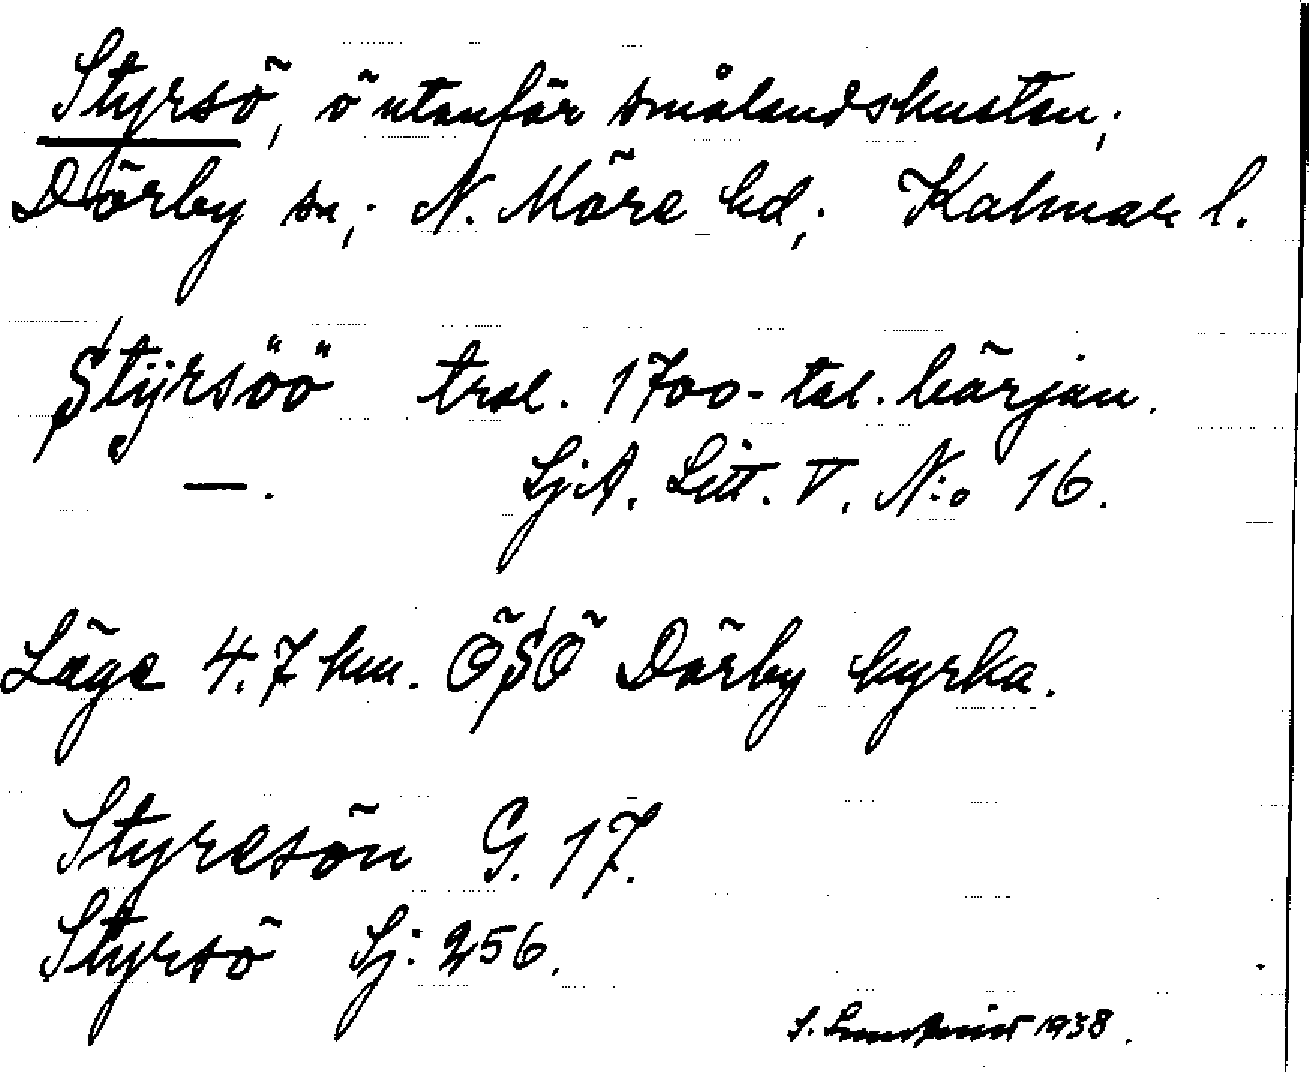 Styrsö, ö utanför smålandskusten;
Dörby sn; N. Möre hd; Kalmar l.
Stÿrsöö trol. 1700-tal. början.
—. SjA. Litt. V. N:o 16.
Läge 4.7 km. ÖSÖ Dörby kyrka.
Styresön G. 17.
Styrsö Sj: 256.
1938.